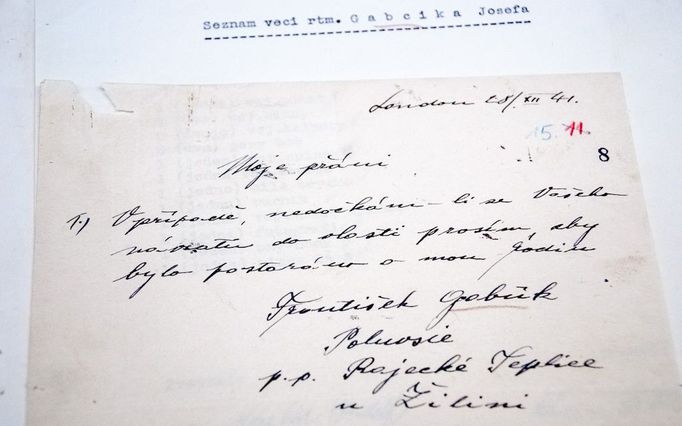 Seznam veci rtm. Gabcika Josefa
London 28/XII 41.
15. 11.
8
Moje přáni
1.) V připadě, nedočkám-li se Vašeho
návratu do vlasti prosím, aby
bylo postaráno o mou rodinu
František Gabčík
Poluvsie
p.p. Rajecké Teplice
u Žilini